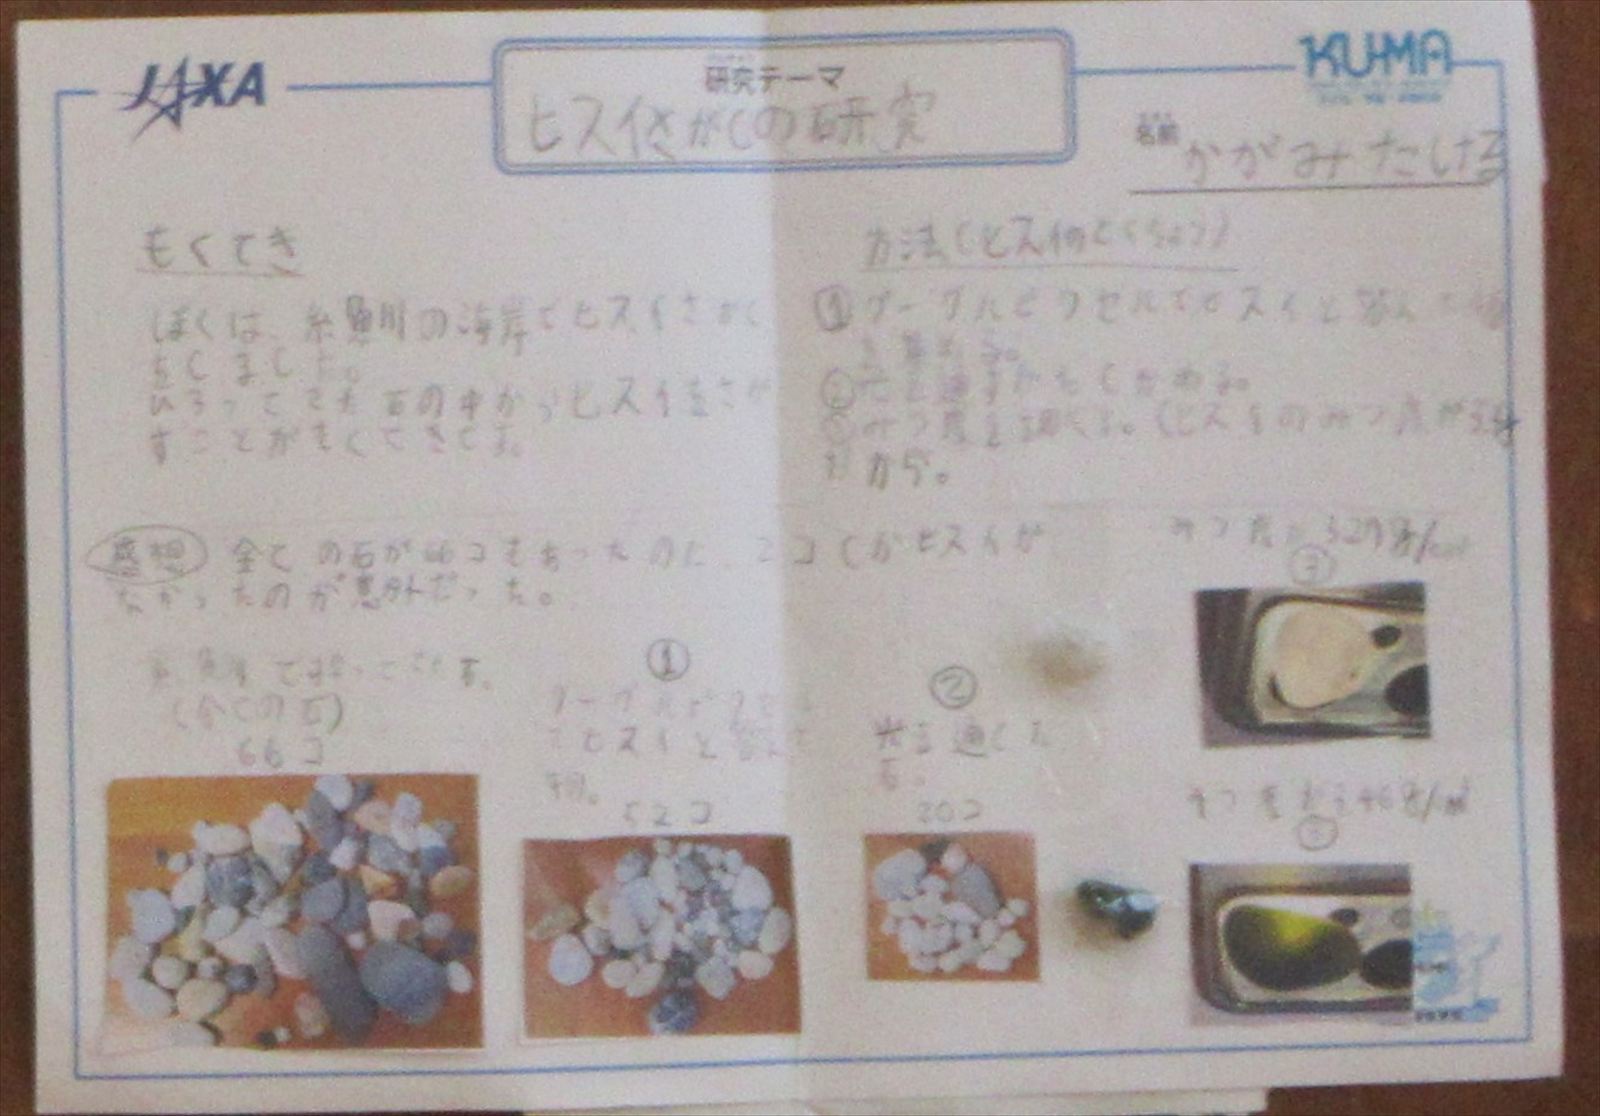 JAXA
研究テーマ
KU-MA
ヒスイさがしの研究
名前 かがみたける
もくてき
ぼくは、糸魚川の海岸でヒスイさがし
をしました。
ひろってきた石の中からヒスイをさが
すことがもくてきです。
方法(ヒスイのとくちょう)
① グーグルピクセルでヒスイと
② 光を通すかたしかめる。
みつ度を調べる。(ヒスイのみつ度が
だから。
感想 全ての石が66コもあったのに、2コしかヒスイが
なかったのが意外だった。
(全ての石)
66コ
①
グーグルピクセル
でヒスイと
52コ
②
光を通した
石。
20コ
みつ度
③
みつ度が3.46g/
③